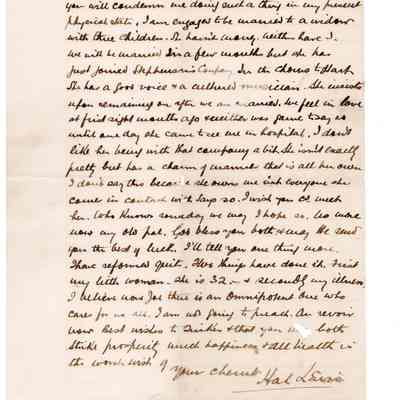 you will condemn me doing such a thing in my present
physical state. I am engaged to be married to a widow
with three children. She hasn't money, neither have I.
We will be married in a few months but she has
just joined Stephenson's Company in the chorus to start
She has a good voice & a cultured musician. She insists
upon remaining on after we are married. We feel in love
at first sight months ago & neither was game to say so
until one day she came to see me in hospital. I don't
like her being with that company a bit. She isn't exactly
pretty but has a charm of manner that is all her own
I don't say this because she owns me but everyone she
come in contact with says so. I wish you cd meet
her. Who knows someday we may I hope so. No more
now my old pal. God bless you both & may He send
you the best of luck. I'll tell you one thing more.
I have reformed quite. Two things have done it. First
my little woman. She is 32 & secondly my illness
I believe now Joe there is an omnipotent one who
cares for us all. I am not going to preach. Au revoir
now best wishes to & that you may both
strike prosperity much happiness & all health is
the words wish of your cherub Hal